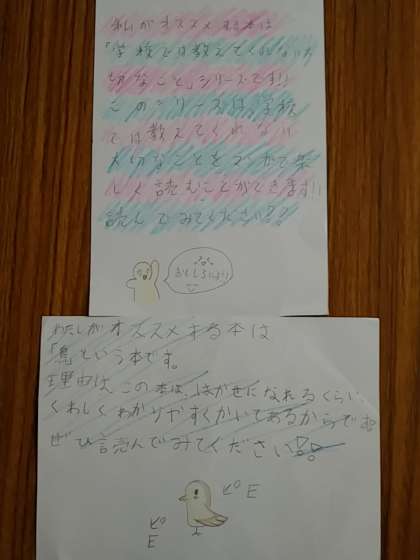 私がオススメする本は
「学校では教えてくれない大
切なこと」シリーズです!!
このシリーズは、学校
では教えてくれない
大切なことをマンガで楽
しく読むことができます!!
読んでみてください!!
おもしろいよ!
わたしがオススメする本は
「鳥」という本です。
理由は、この本は、はかせになれるくらい、
くわしくわかりやすくかいてあるからです。
ぜひ読んでみてください!!
ピ。E
ピ。
E